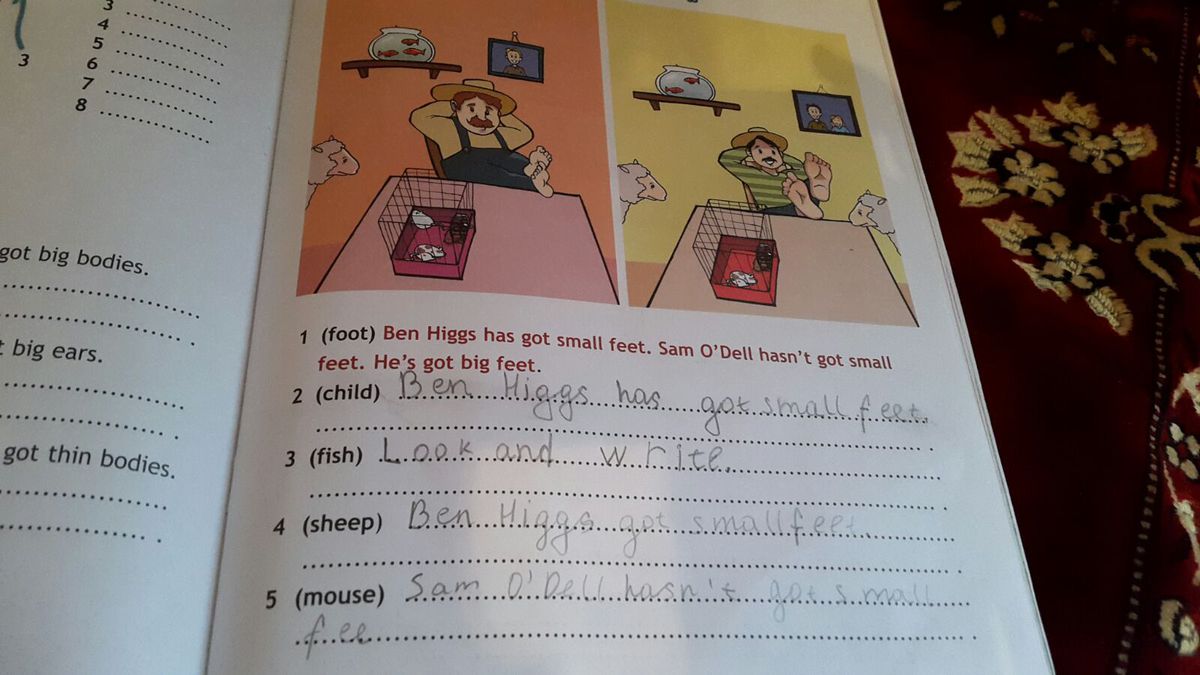 3
3
4
5
6
7
8
got big bodies.
big ears.
got thin bodies.
1 (foot) Ben Higgs has got small feet. Sam O'Dell hasn't got small
feet. He's got big feet.
2 (child) Ben Higgs has got small feet.
3 (fish) Look and write.
4 (sheep) Ben Higgs got small feet
5 (mouse) Sam O'Dell hasn't got small
fee